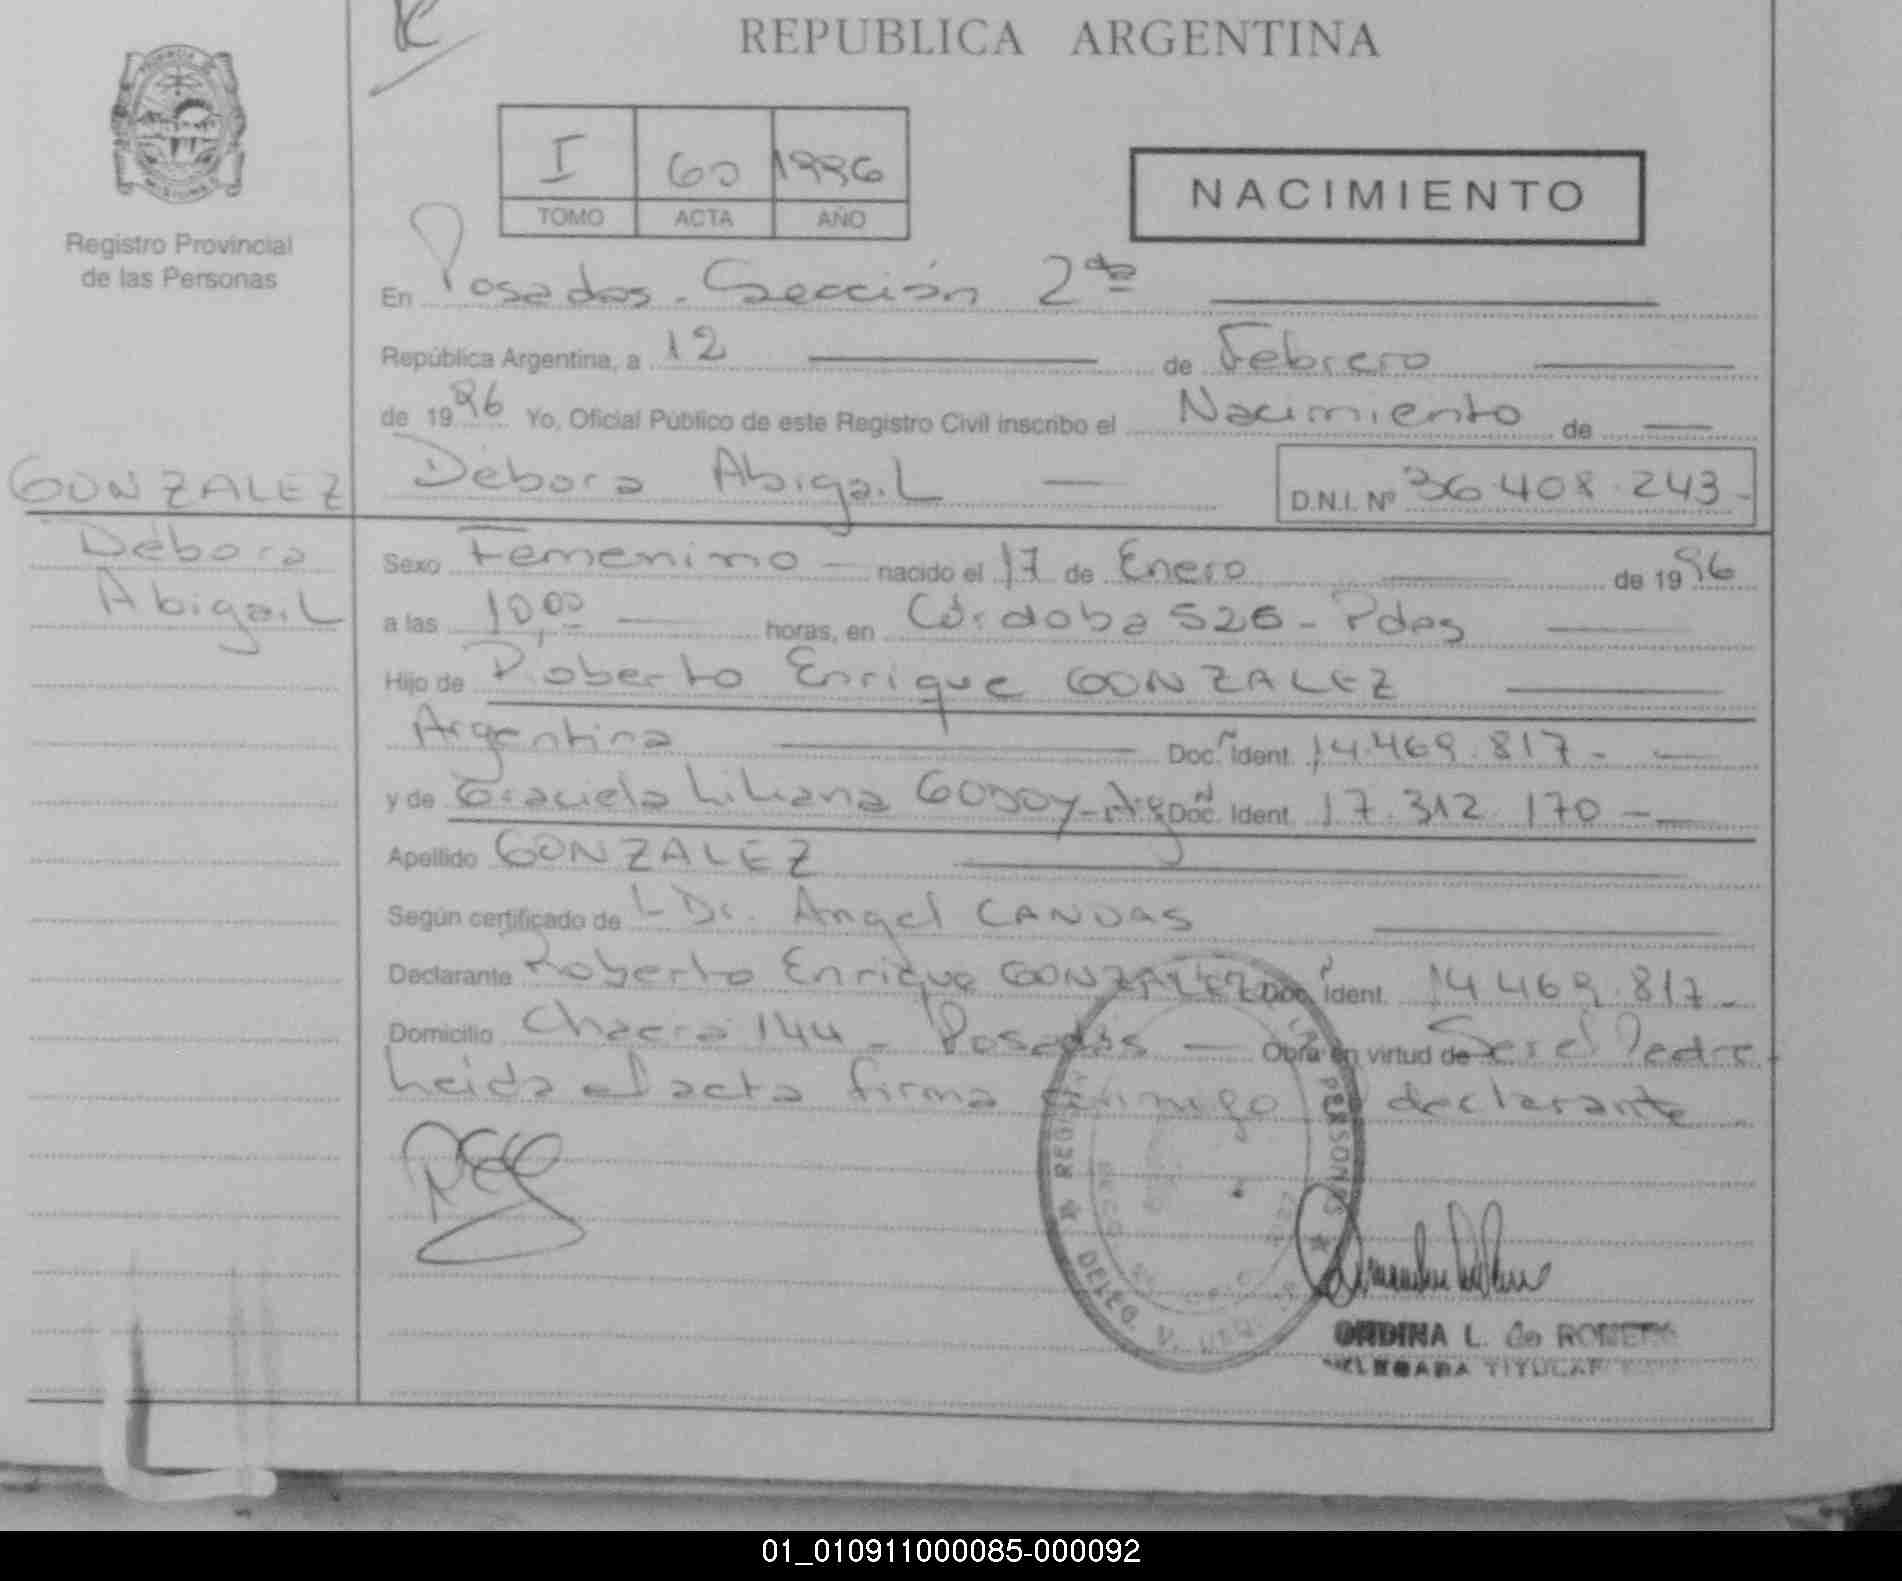 REPUBLICA ARGENTINA
I 60 1996
TOMO ACTA AÑO
NACIMIENTO
Registro Provincial
de las Personas
En Posadas - Sección 2da
República Argentina, a 12 de Febrero
de 1996 Yo, Oficial Público de este Registro Civil inscribo el Nacimiento de
GONZALEZ
Débora Abigail
D.N.I. Nº 36.408.243-
Débora
Abigail
Sexo Femenino nacido el 17 de Enero de 1996
a las 10,00 horas, en Córdoba 526 - Pdas
Hijo de Roberto Enrique GONZALEZ
Argentina Doc. Ident. 14.469.817-
y de Graciela Liliana GODOY-Arg Doc. Ident. 17.312.170-
Apellido GONZALEZ
Según certificado de Dr. Angel CANOAS
Declarante Roberto Enrique GONZALEZ Doc. Ident. 14.469.817-
Domicilio Chacra 144 - Posadas - Obra en virtud de Ser el Padre
Leida el acta firma conmigo el declarante
PERSONAS
DELEG.
L. de
TITULAR
01_010911000085-000092